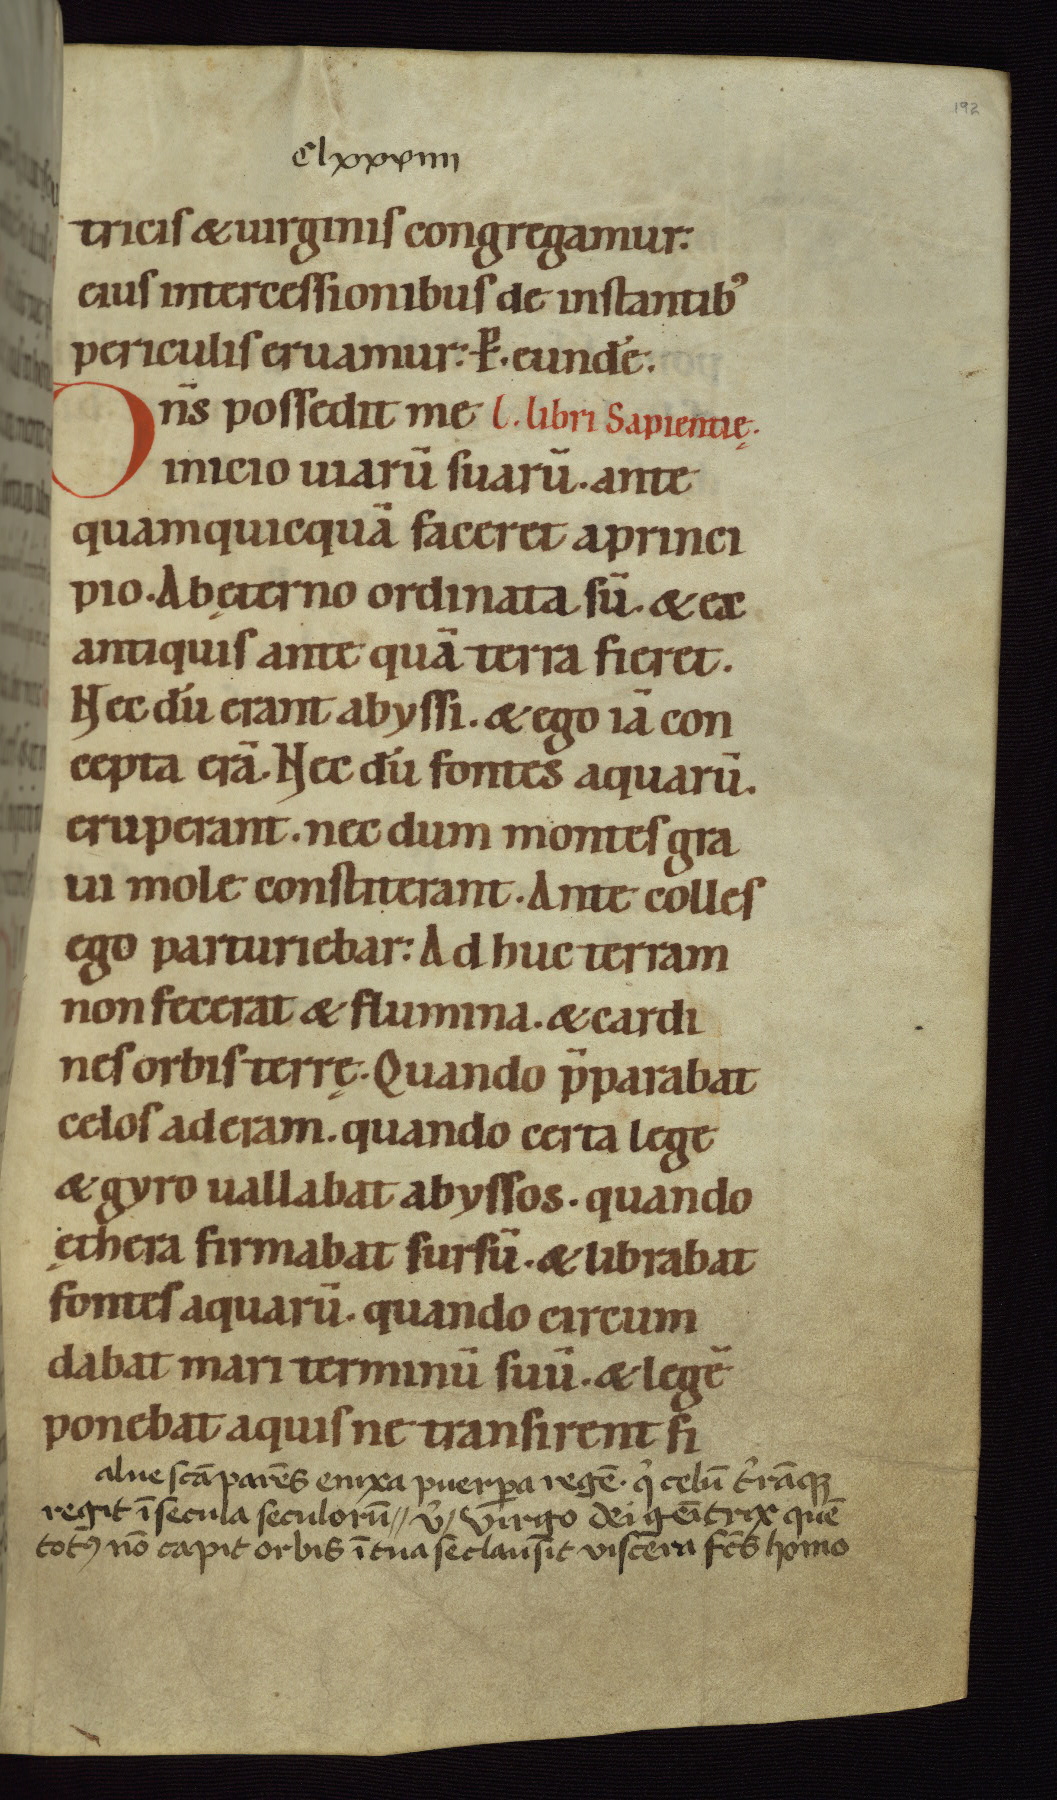 192
Clxxxiiii
tricis & uirginis congregamur:
eius intercessionibus de instantib᾽
periculis eruamur: P̄. eundē.
Dn̄s possedit me L. libri Sapientię.
inicio uiarū suarū. ante
quam quicquā faceret a princi
pio. Ab ęterno ordinata sū. & ex
antiquis ante quā terra fieret.
Nec dū erant abyssi. & ego iā con
cepta erā. Nec dū fontes aquarū.
eruperant. nec dum montes gra
ui mole constiterant. Ante colles
ego parturiebar: Ad huc terram
non fecerat & flumina. & cardi
nes orbis terrę. Quando p̄parabat
celos aderam. quando certa lege
& gyro uallabat abyssos. quando
ęthera firmabat sursū. & librabat
fontes aquarū. quando circum
dabat mari terminū suū. & legē
ponebat aquis ne transirent fi
alue scā parēs enixa puerpa regē. q̓ celū t̓rāqꝫ
regit ī secula seculorū// v̓/ Virgo dei geītrix quē
totꝰ nō capit orbis ī tua se clausit viscera fc̄s homo